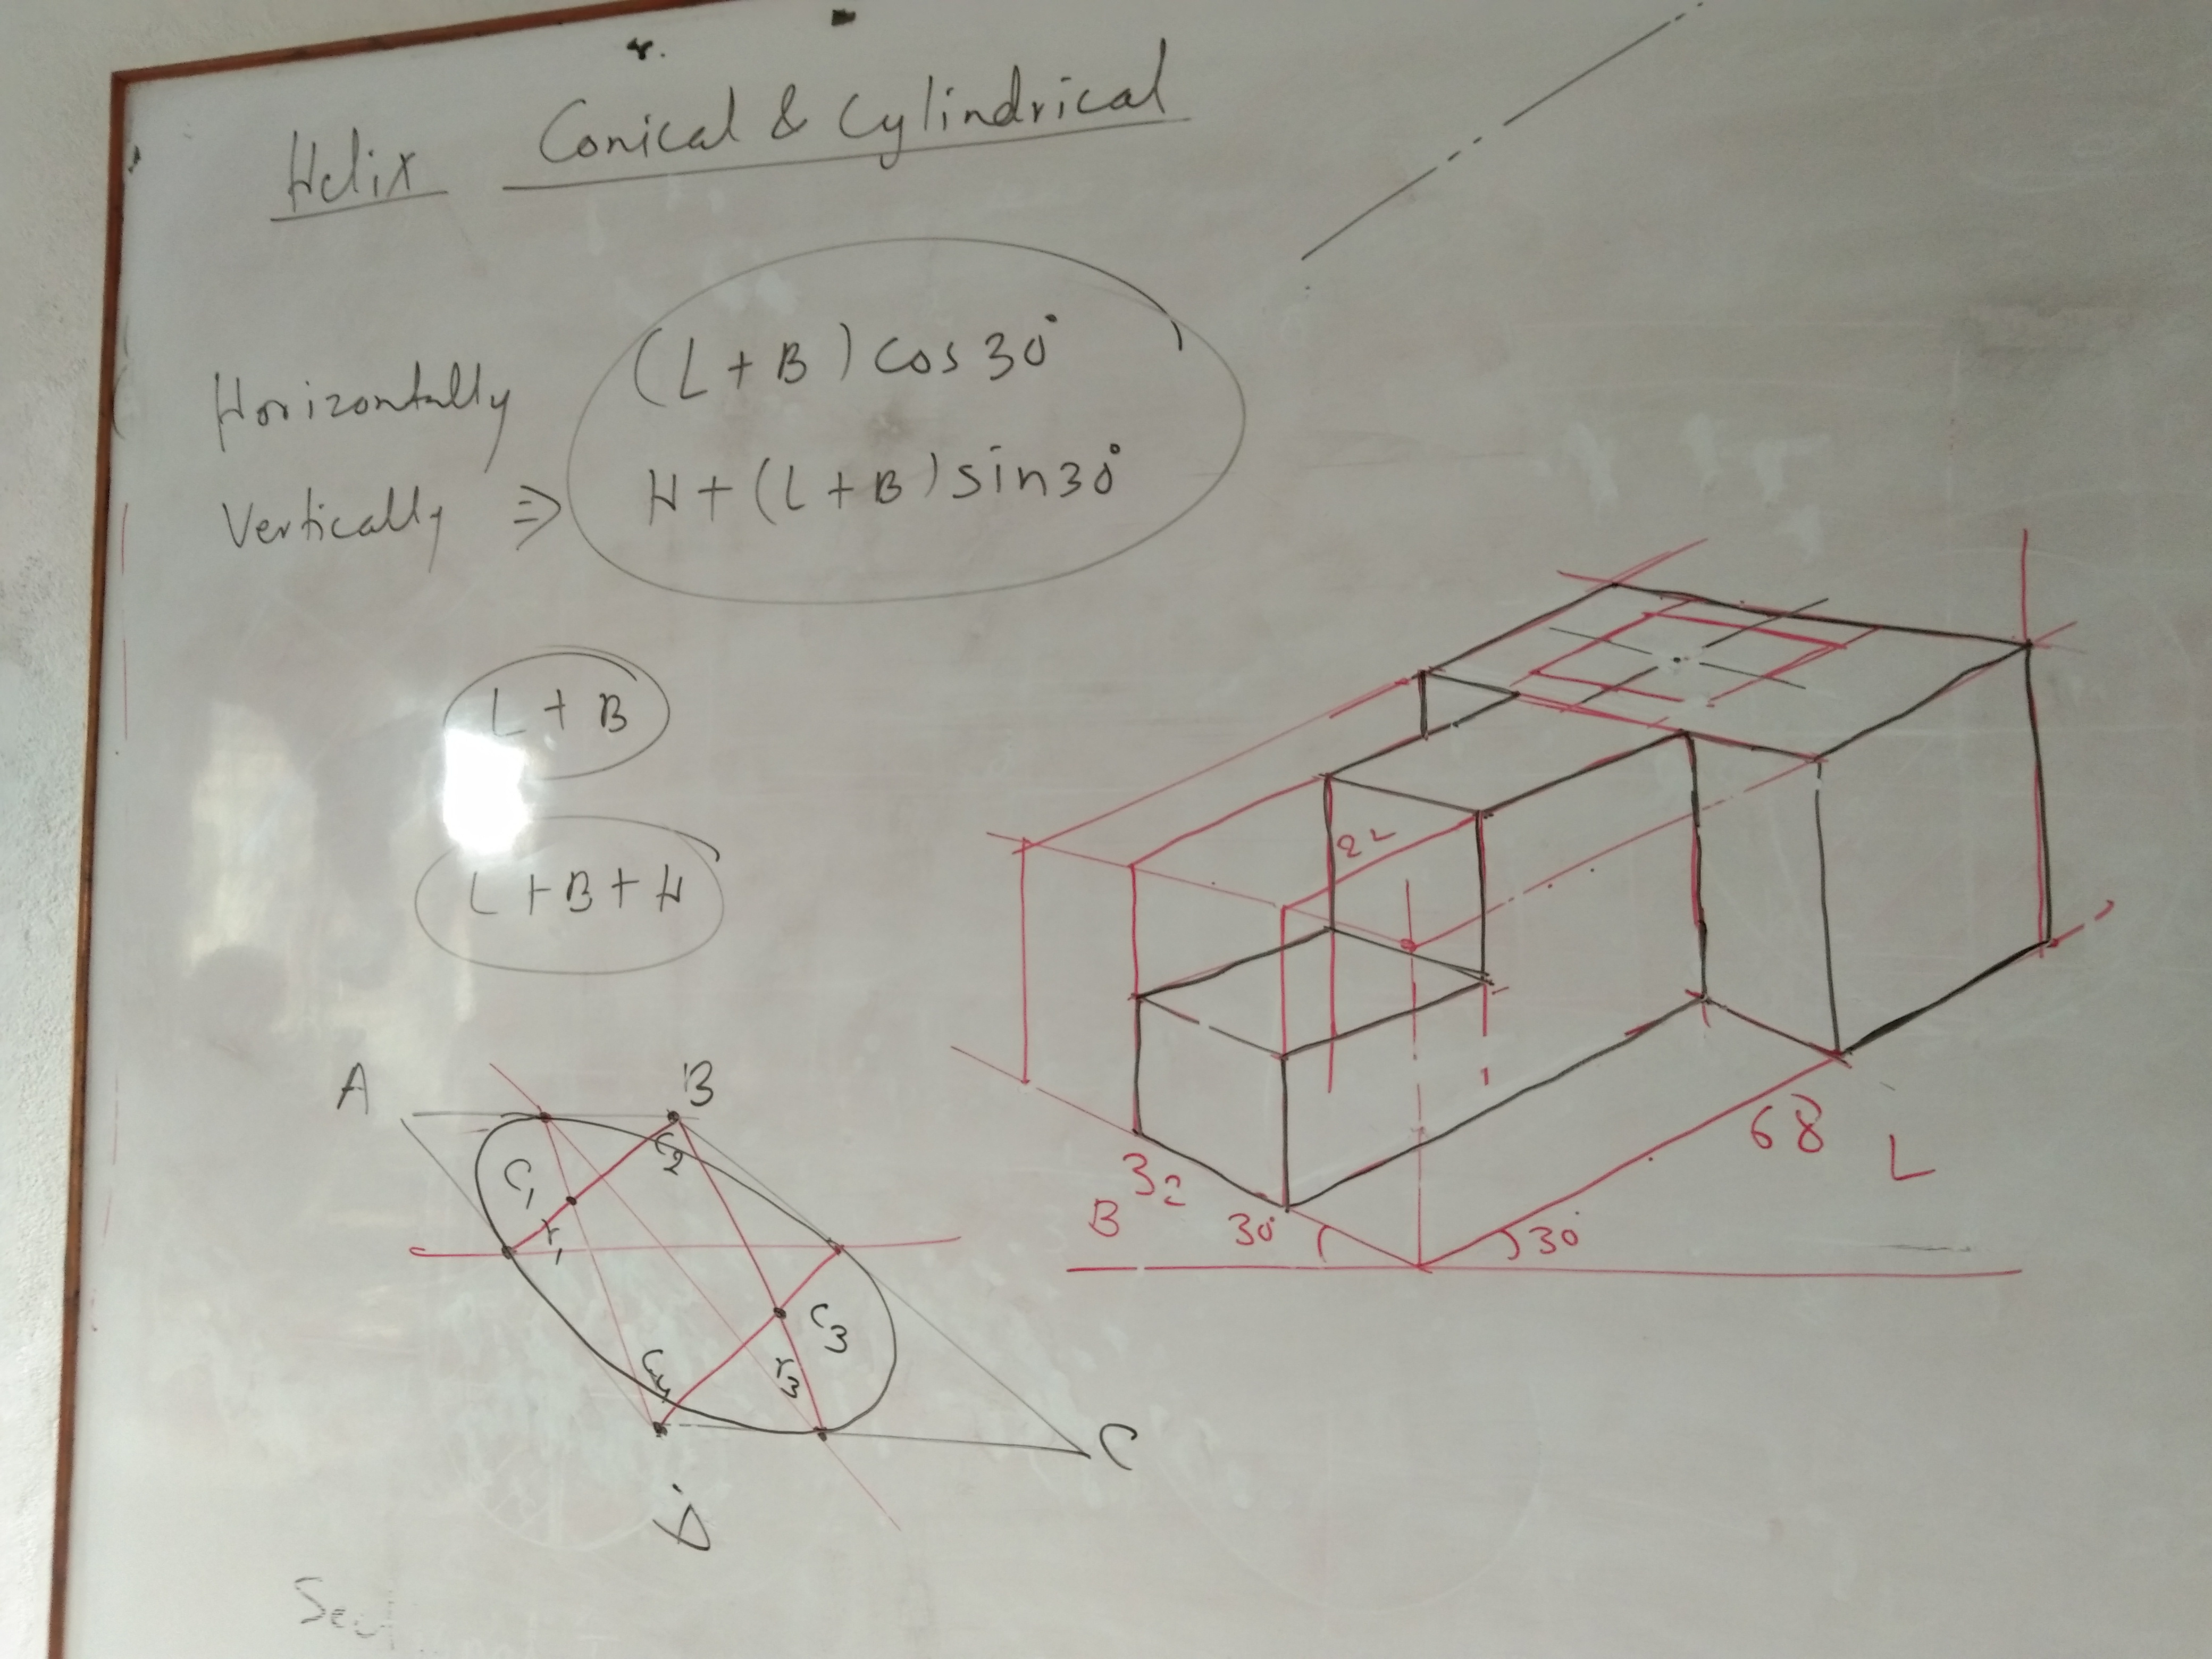 Helix Conical & Cylindrical
Horizontally (L + B) cos 30°
Vertically ⇒ H + (L + B) sin 30°
L + B
L + B + H
A
B
C1
C2
r1
C3
C4
r3
C
D
22
68
L
32
B
30°
30°